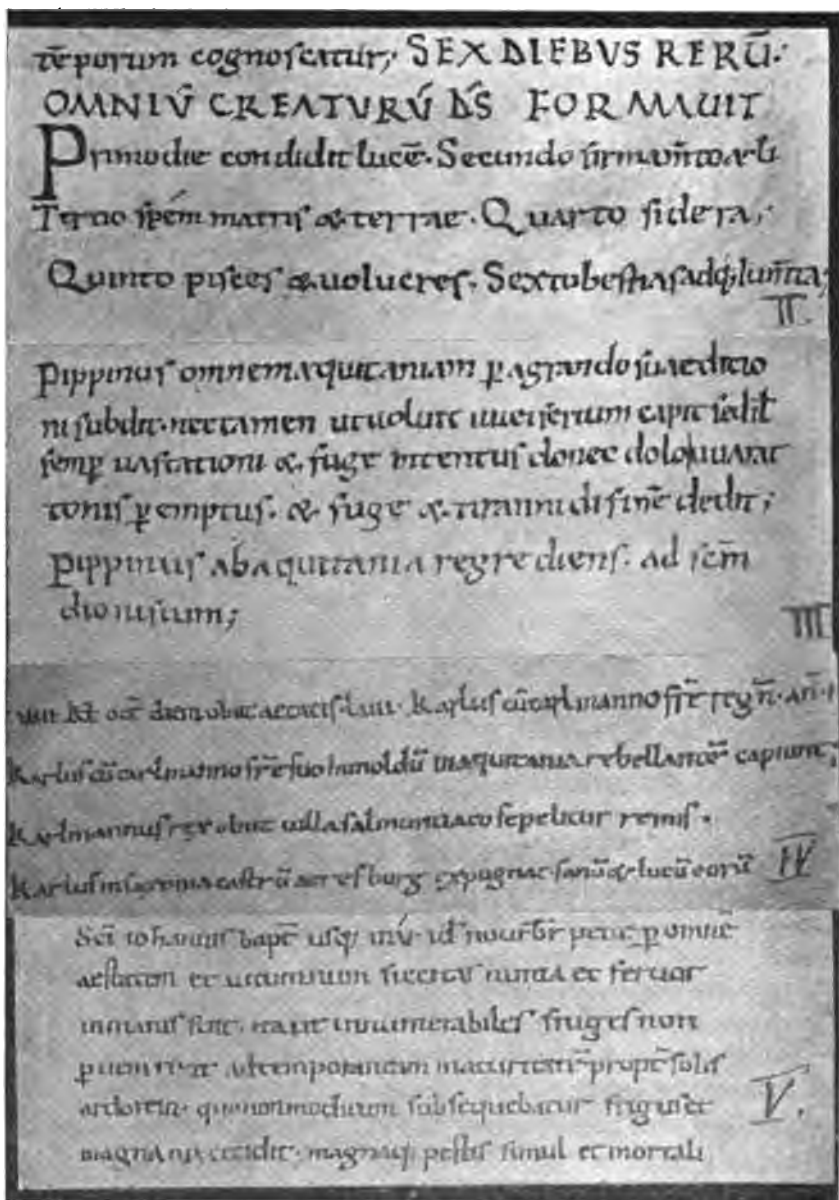 tēporum cognoscatur; SEX DIEBVS RERŪ.
OMNIŪ CREATURŪ DS̄ FORMAUIT
Primo die condidit lucē. Secundo firmam̄to &
Tertio spēm maris & terrae. Quarto sidera;
Quinto pisces & uolucres. Sexto bestias adq;
II.
pippinus omnem aquitaniam p̄agrando suae ditio
ni subdit. nec tamen ut uoluit uueiferium capit sed
semp̄ uastationi & fuge intentus donec dolo
tonis p̄emptus. & fuge & tiranni di finē dedit;
pippinus ab aquitania regrediens. ad sc̄m
dionisium;
III
Karlus cū carlmanno fr̄e regn̄. an̄.
Karlus cū carlmanno fr̄e suo hunoldū in aquitania rebellantē capiunt;
Karlmannus rex obiit uilla salmunciaco sepelitur remis.
Karlus in saxonia castrū aeresburg expugnat fanū & lucū eorū
IV
Sc̄i iohannis bapt̄ usq; id̄ nouēbr̄ pene p̄ omnē
aestatem et autumnum siccitas nimia et feruor
inmanis fuit. ita ut innumerabiles fruges non
ad temporaneam maturitatē propt̄ solis
ardorem. quam subsequebatur frigus et
magna accidit. magnaq; pestis simul et mortali
V.